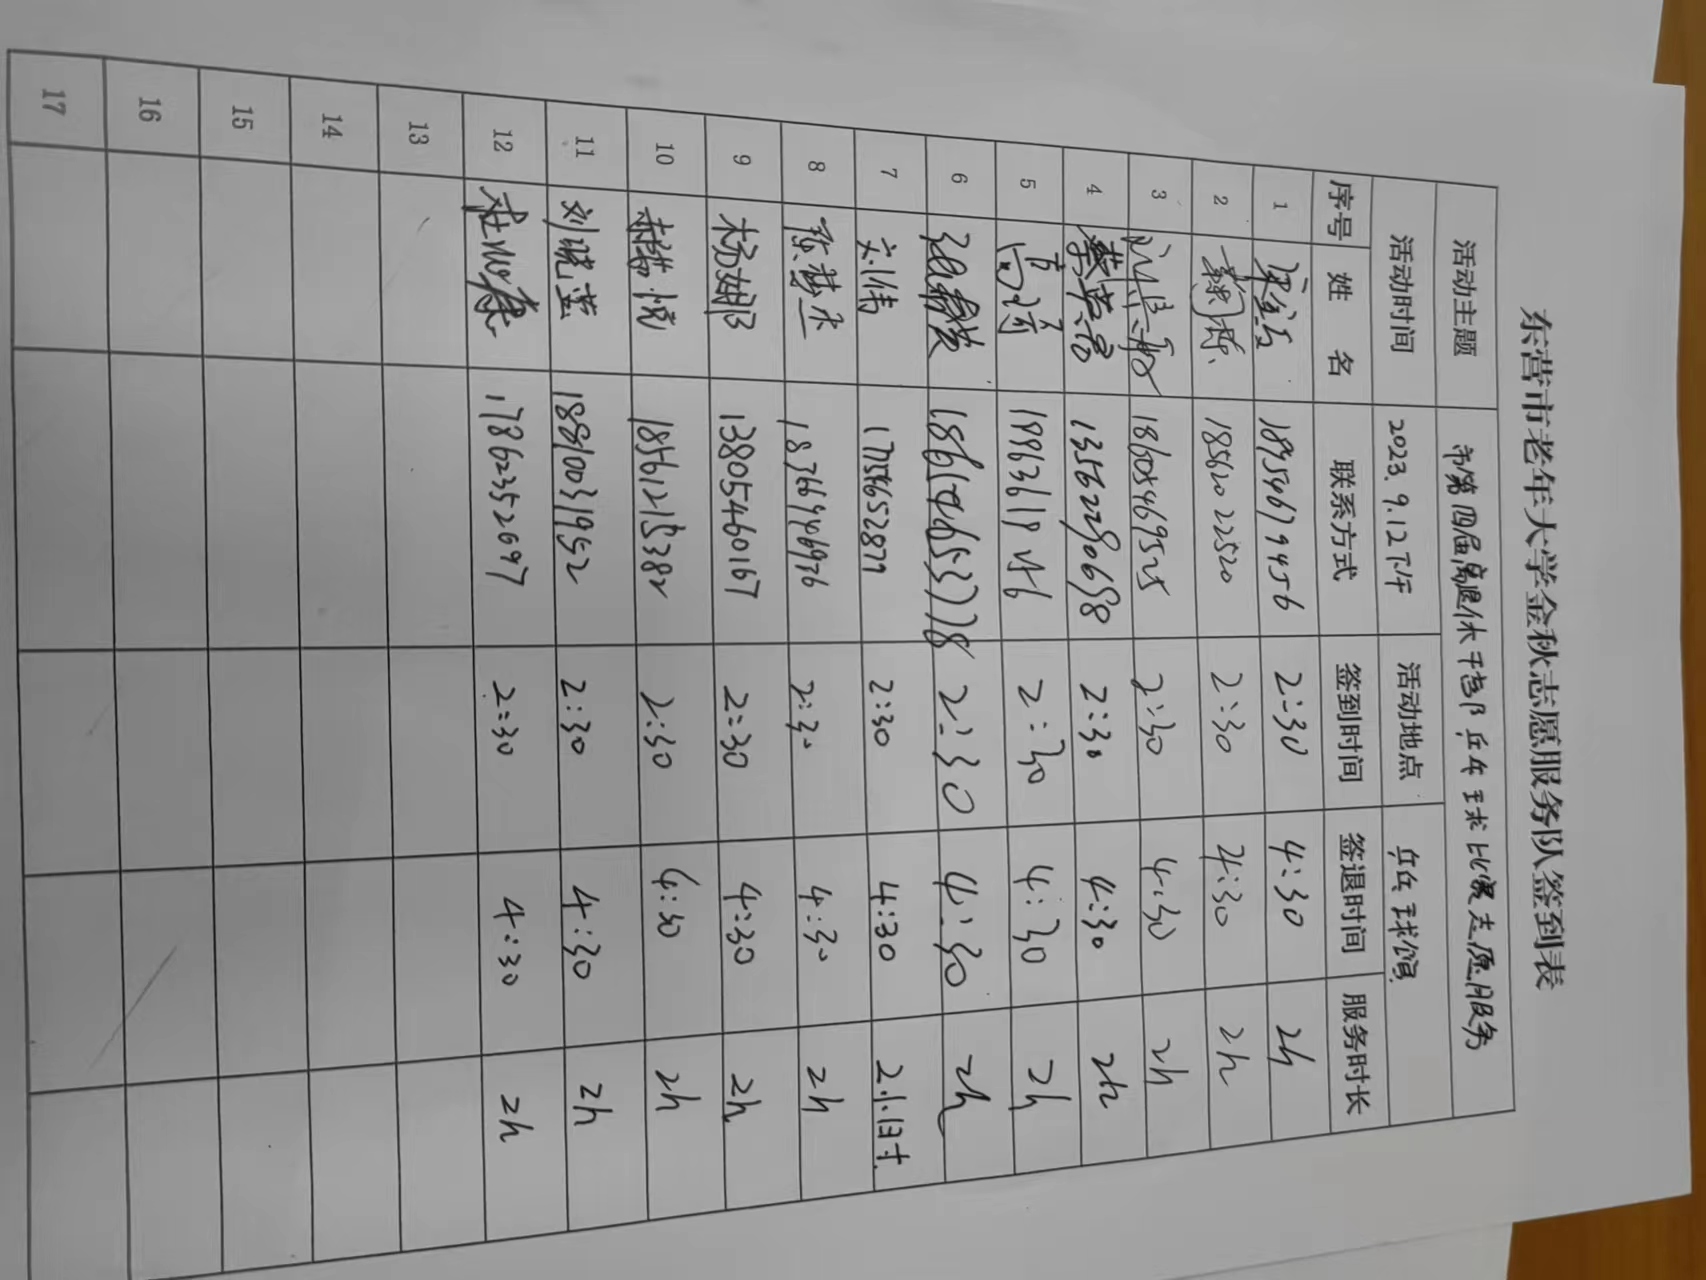 东营市老年大学金秋志愿服务队签到表
活动主题 市第四届离退休干部乒乓球比赛志愿服务
活动时间 2023.9.12下午 活动地点 乒乓球馆
序号 姓 名 联系方式 签到时间 签退时间 服务时长
1 18954679456 2:30 4:30 2h
2 18562022520 2:30 4:30 2h
3 2:30 4:30 2h
4 13562290698 2:30 4:30 2h
5 高 2:30 4:30 2h
6 2:30 4:30 2h
7 刘伟 2:30 4:30 2小时
8 18766946976 2:30 4:30 2h
9 杨 13805460167 2:30 4:30 2h
10 悦 2:30 4:30 2h
11 刘晓莹 18910031952 2:30 4:30 2h
12 17862352097 2:30 4:30 2h
13
14
15
16
17